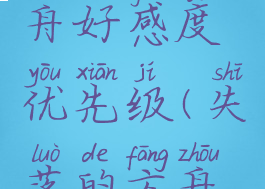 舟好感度
yōu xiān jí shī
优先级(失
luò de fāng zhōu
落的方舟